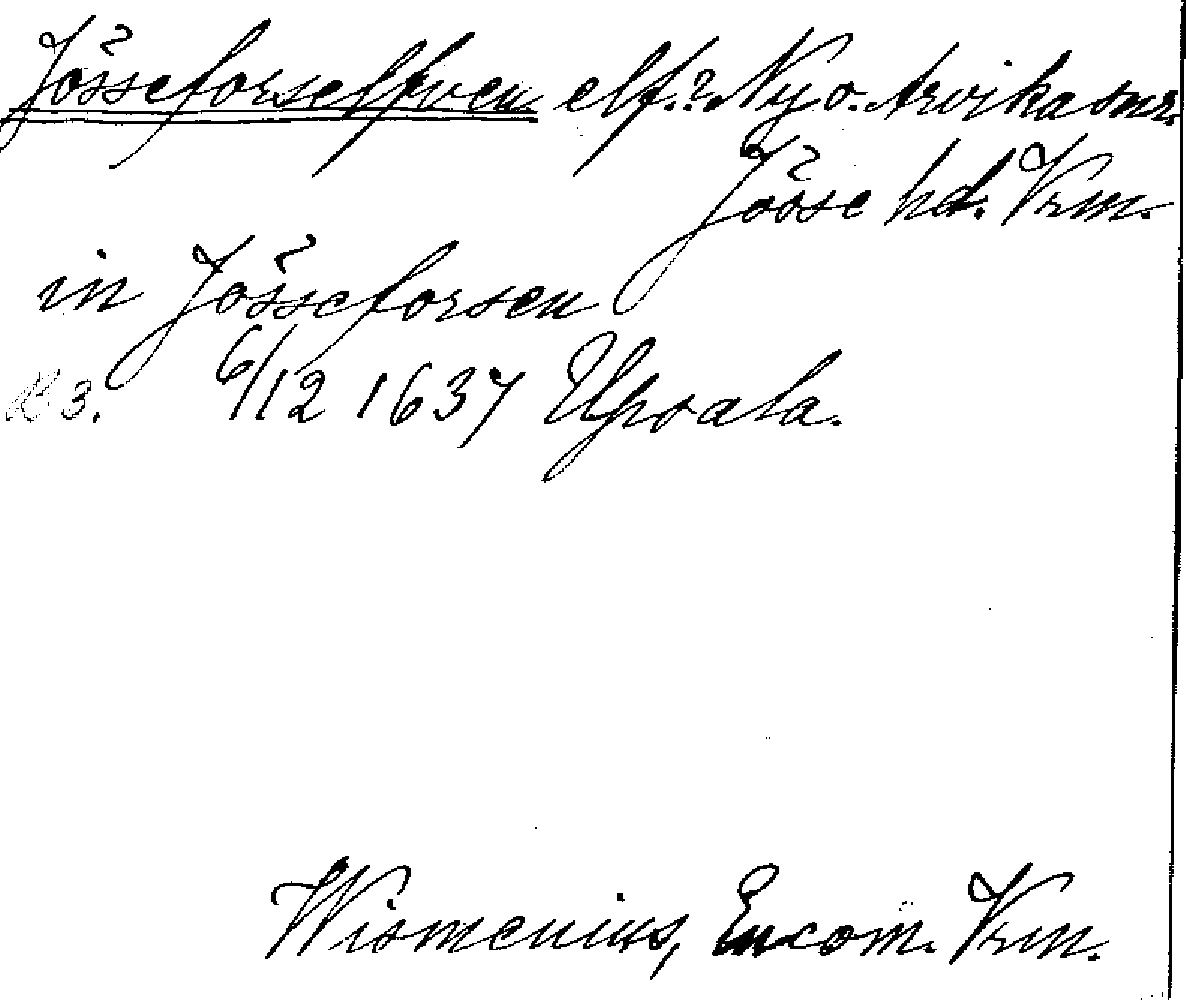 Jösseforselfven elf.? Ny o. Arvika snr.
Jösse hd. Vrm.
in Jösseforsen
B 3. 6/12 1637 Upsala.
Wismenius, Encom. Vrm.